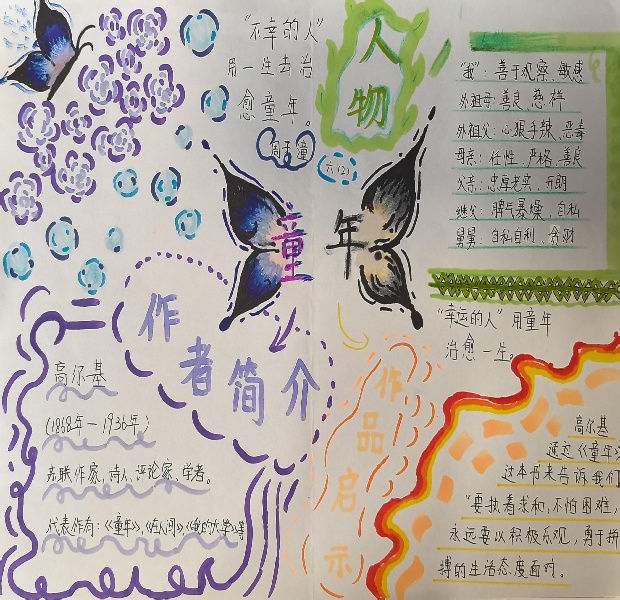 "不幸的人"
用一生去治
愈童年。
周子童
六(2)
人物
"我"：善于观察、敏感
外祖母：善良、慈祥
外祖父：心狠手辣、恶毒
母亲：任性、严格、善良
父亲：忠厚老实、开朗
继父：脾气暴燥、自私
舅舅：自私自利、贪财
童年
"幸运的人"用童年
治愈一生。
作者简介
高尔基
(1868年－1936年)
苏联作家、诗人、评论家、学者。
代表作有：《童年》、《在人间》、《我的大学》等
作品启示
高尔基
通过《童年》
这本书来告诉我们
"要执着求和，不怕困难，
永远要以积极乐观，勇于拼
搏的生活态度面对。